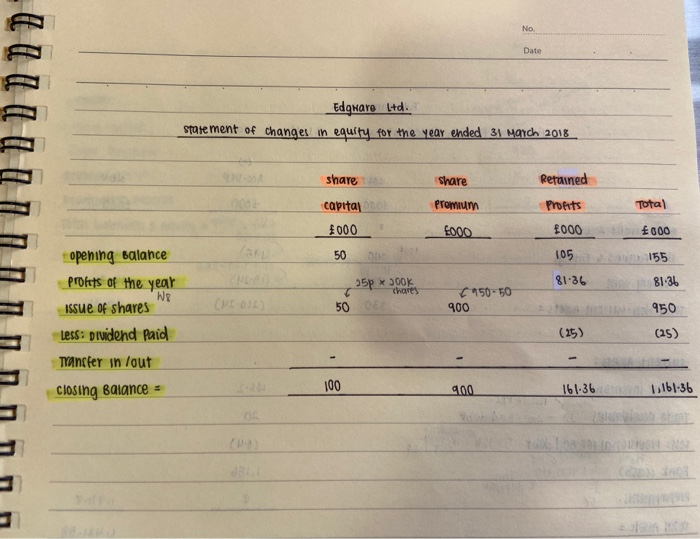 No.
Date
Edgware Ltd.
statement of changes in equity for the year ended 31 March 2018
share share Retained
capital premium Profits Total
£000 £000 £000 £000
opening Balance 50 105 155
Profits of the year 81.36 81.36
W8 25p x 200k shares 950-50
issue of shares 50 900 950
Less: Dividend Paid (25) (25)
Transfer in/out - - - -
closing Balance = 100 900 161.36 1,161.36